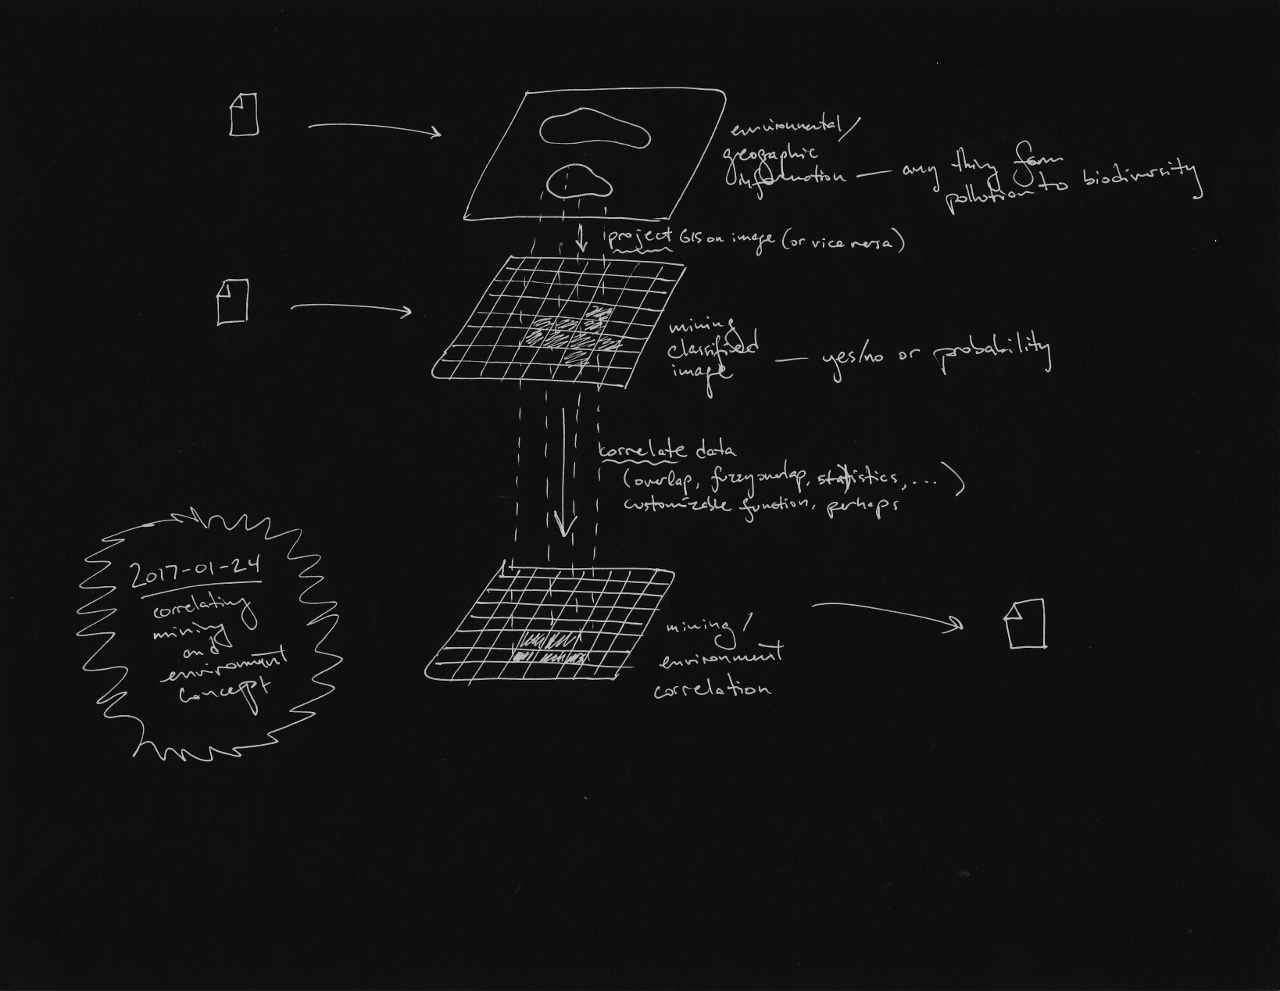 environmental/
geographic
information — any thing from
pollution to biodiversity
project GIS on image (or vice versa)
mining
classified
image — yes/no or probability
correlate data
(overlap, fuzzy overlap, statistics, ...)
customizable function, perhaps
2017-01-24
correlating
mining
and
environment
concept
mining/
environment
correlation